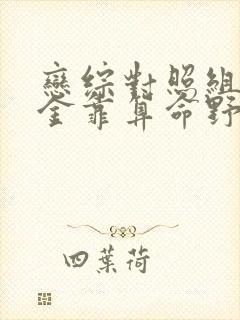 戀綜對照組
全靠算命野
四葉荷